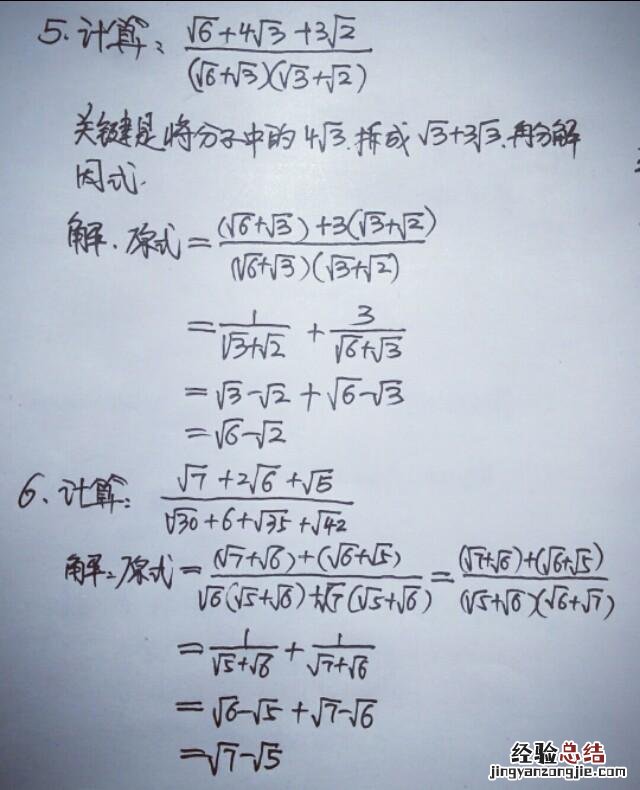 5. 计算: (√6+4√3+3√2)/((√6+√3)(√3+√2))
关键是将分子中的4√3.拆成√3+3√3.再分解
因式.
解.原式=((√6+√3)+3(√3+√2))/((√6+√3)(√3+√2))
=1/(√3+√2)+3/(√6+√3)
=√3-√2+√6-√3
=√6-√2
6. 计算: (√7+2√6+√5)/(√30+6+√35+√42)
解:原式=((√7+√6)+(√6+√5))/(√6(√5+√6)+√7(√5+√6))=((√7+√6)+(√6+√5))/((√5+√6)(√6+√7))
=1/(√5+√6)+1/(√7+√6)
=√6-√5+√7-√6
=√7-√5
经验总结
jingyanzongjie.com